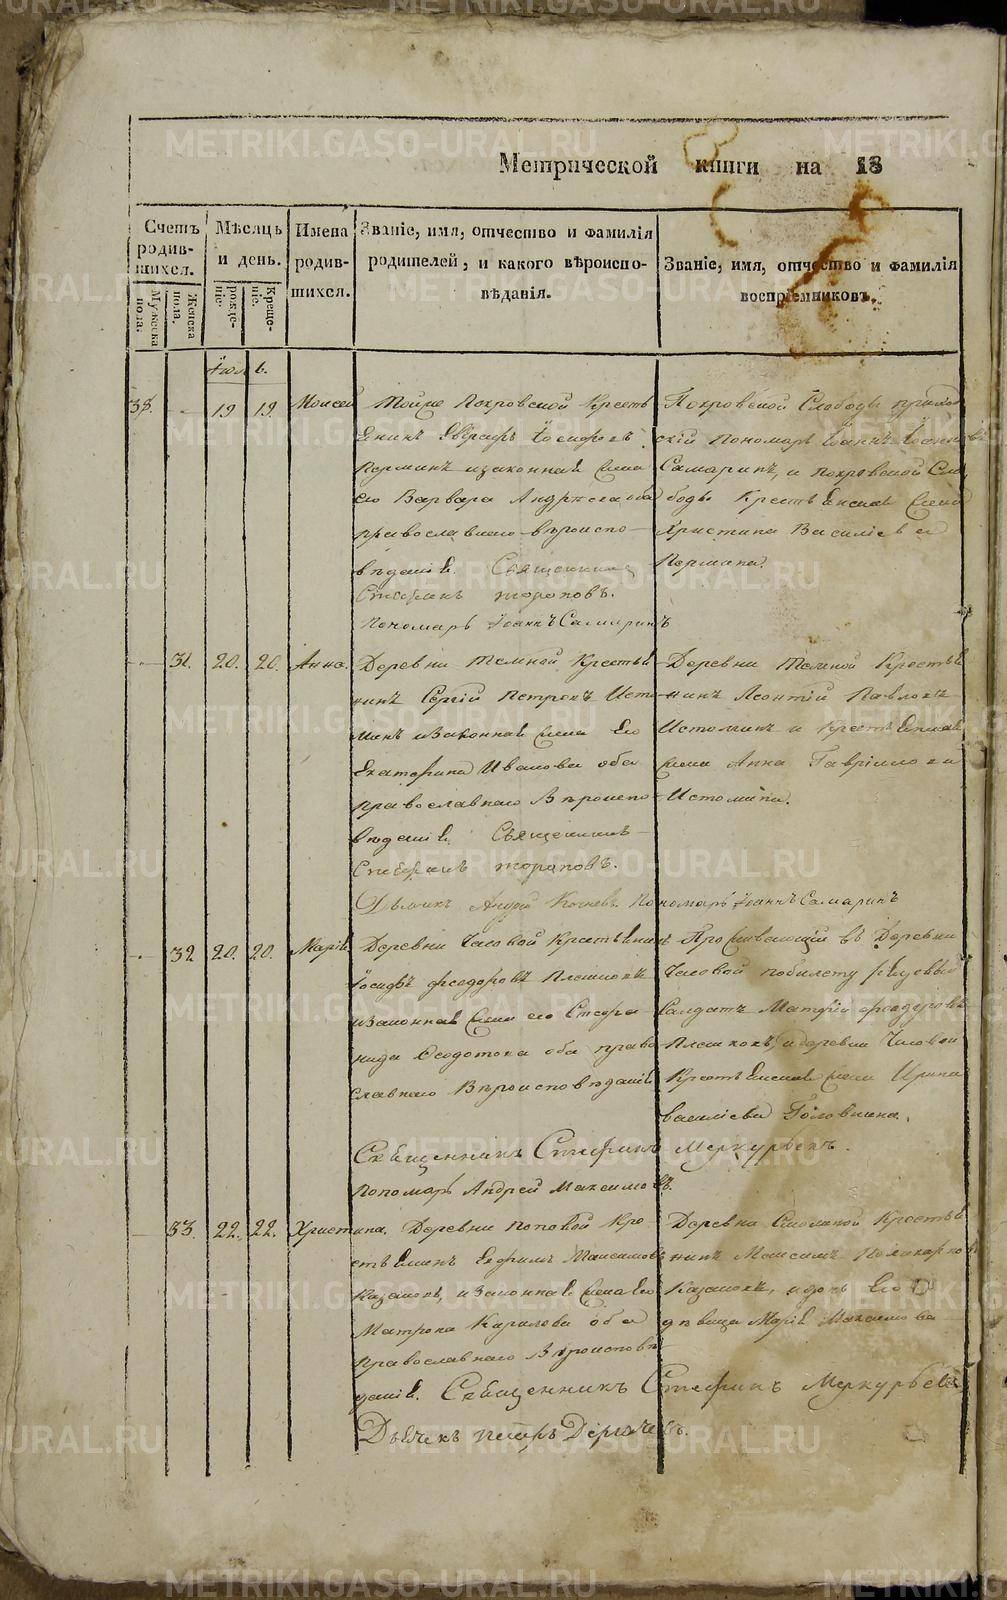 METRIKI.GASO-URAL.RU
Метрической книги на 18
Счетъ родив-шихся.
Мужеска пола.
Женска пола.
Мѣсяцъ и день.
рожде-ніе.
Креще-ніе.
Имена родив-шихся.
Званіе, имя, отчество и фамилія родителей, и какого вѣроиспо-вѣданія.
Званіе, имя, отчество и фамилія воспріемниковъ.
Іюль.
38. 19 19. Моисей
Тойже Покровской Кресть
Іосифовъ
Перминъ изаконная жена
его Варвара Андреева оба
православнаго вѣроиспо-
вѣданія. Священникъ
Стефанъ Тороповъ.
Пономарь Іоаннъ Самаринъ
Покровской Слободы приход
скій Пономарь Іоаннъ Іоанновъ
Самаринъ, и Покровской Сло
боды Крестьянская жена
Христина Василіева
Пермина.
31. 20. 20. Анна.
Деревни Темной Крестья
нинъ Сергій Петровъ Исто
минъ изаконная жена Его
Екатерина Иванова оба
православнаго Вѣроиспо
вѣданія Священникъ
Стефанъ Тороповъ.
Дьячикъ Андрей Пономарь Іоаннъ Самаринъ
Деревни Темной Крестья
нинъ Леонтій Павловъ
Истоминъ и Крестьянская
жена Анна Гавріилова
Истомина.
32 20. 20. Марія
Деревни Часовой Крестьянинъ
Іосифъ Феодоровъ Плешковъ
изаконная жена его Стефа
нида Феодотова оба право
славнаго Вѣроисповѣданія
Священникъ Стефанъ Меркурьевъ.
Пономарь Андрей Максимовъ.
Проживающій въ Деревни
Часовой побилету
Салдатъ Феодоровъ
Плешковъ, идеревни Часовой
Крестьянская жена Ирина
Василіева Головина.
33. 22. 22. Христина.
Деревни Поповой Кре
стьянинъ Ефимъ Максимовъ
Казаковъ, изаконная жена его
Матрона Карилова оба
Православнаго Вѣроисповѣ
данія. Священникъ Стефанъ Меркурьевъ
Дьячекъ Петръ
Деревни Крестья
нинъ Максимъ
Казаковъ, идочь Его
дѣвица Марія Максимова